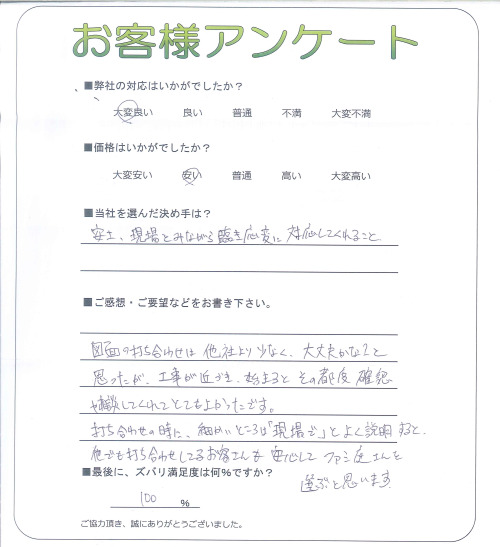 お客様アンケート
■弊社の対応はいかがでしたか?
大変良い 良い 普通 不満 大変不満
■価格はいかがでしたか?
大変安い 安い 普通 高い 大変高い
■当社を選んだ決め手は?
現場をみながら臨機応変に対応してくれること
■ご感想・ご要望などをお書き下さい。
図面の打ち合わせは他社より少なく、大丈夫かな?と
思ったが、工事が近づき、始まるとその都度確認
相談してくれてとてもよかったです。
打ち合わせの時に、細かいところは「現場で」とよく説明すると、
他でも打ち合わせしてるお客さんも安心してファミ庭さんを
選ぶと思います。
■最後に、ズバリ満足度は何%ですか?
100 %
ご協力頂き、誠にありがとうございました。